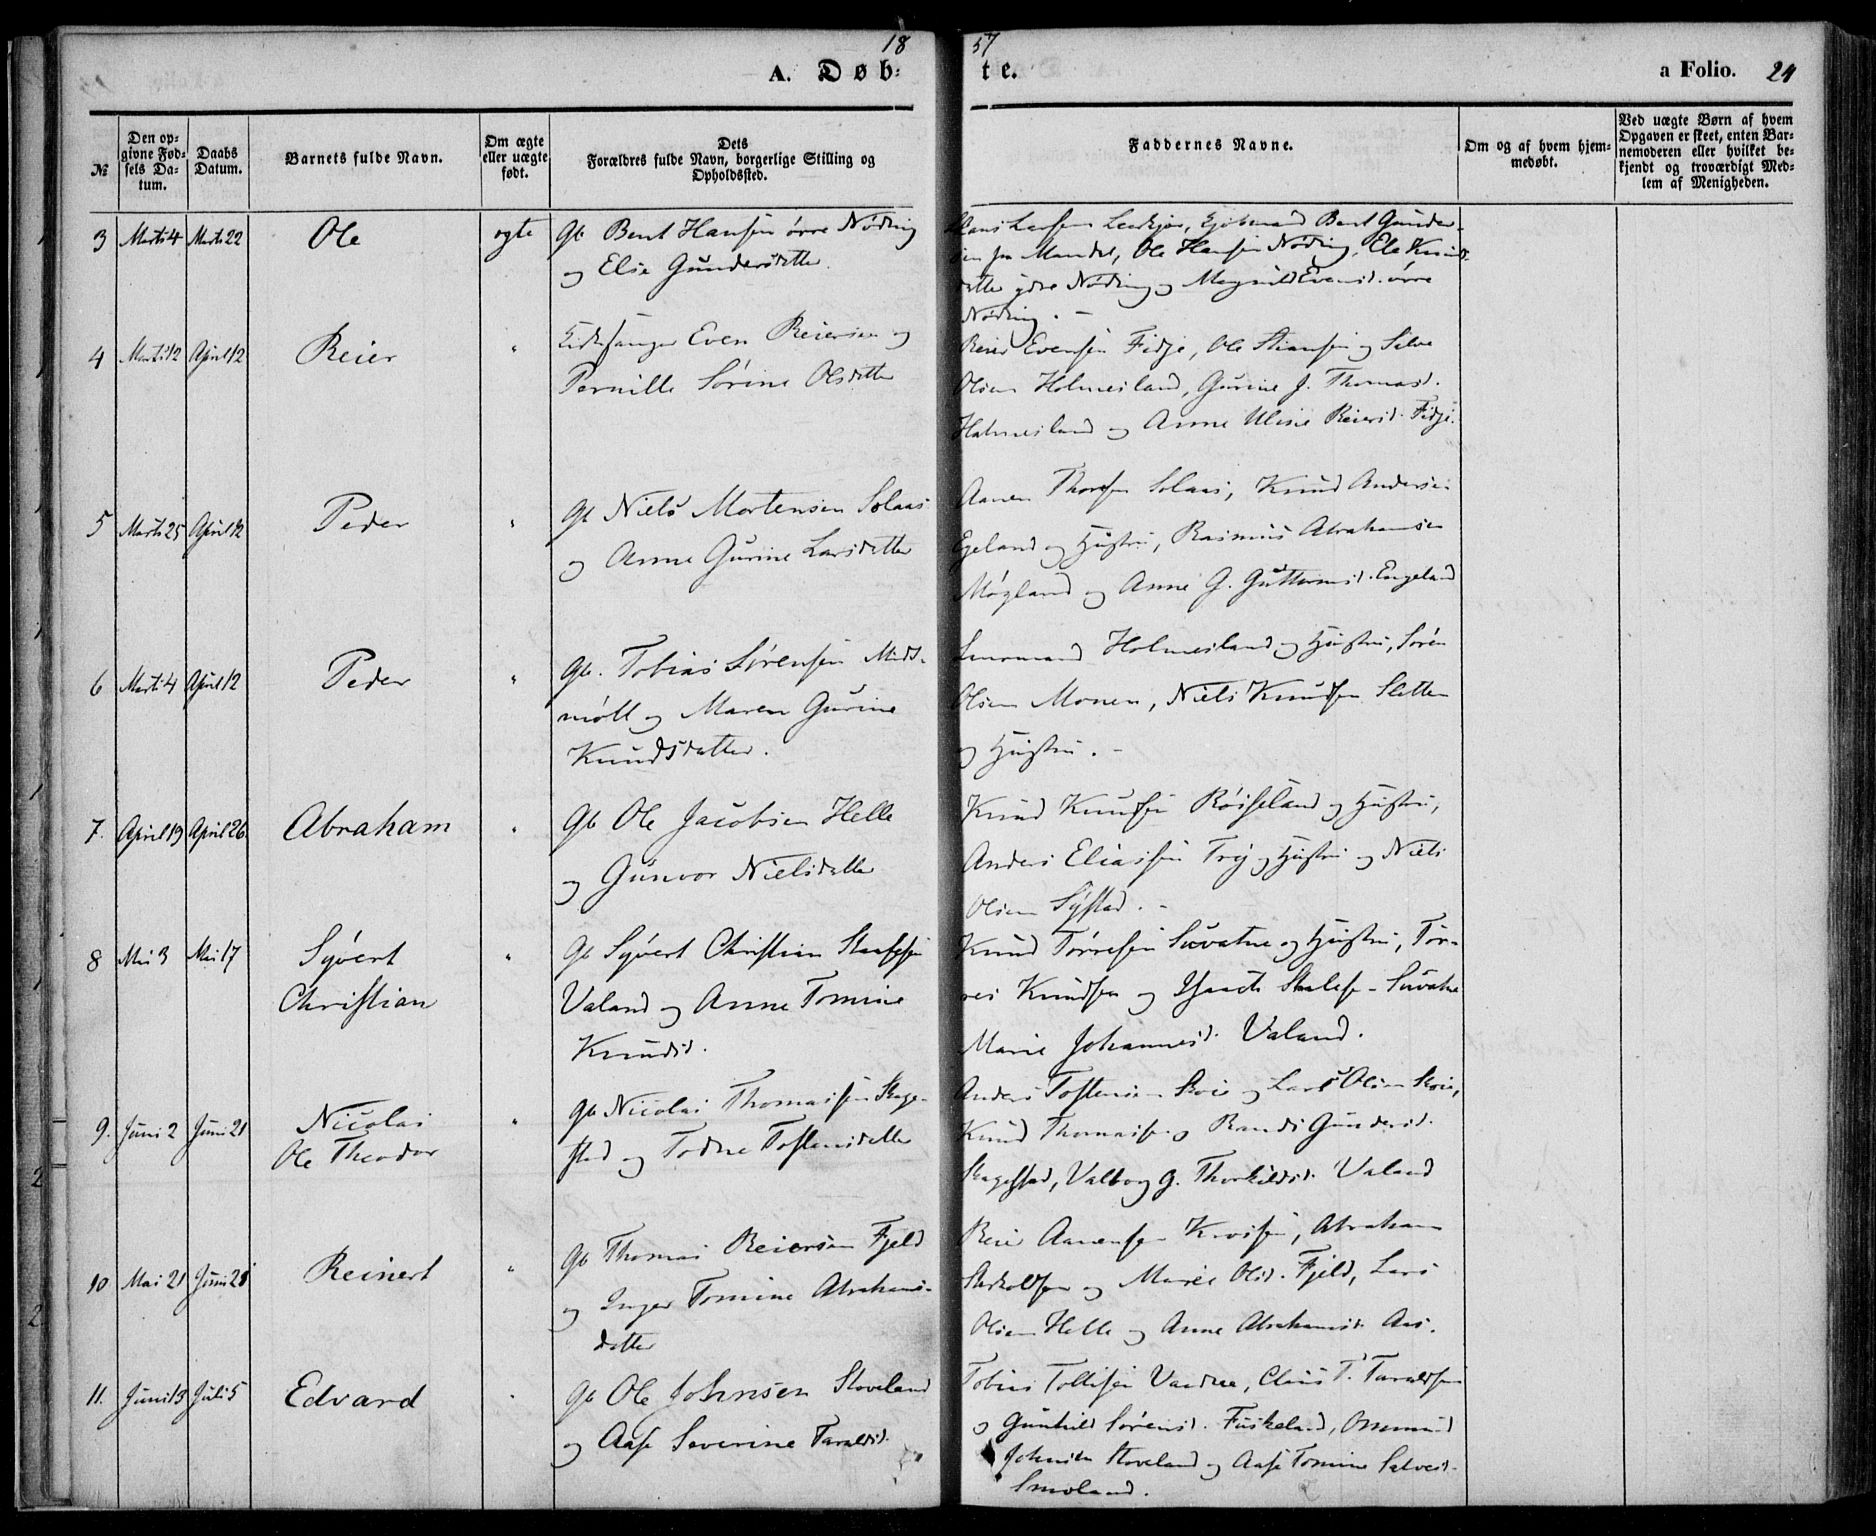 18 57
A. Døbte.
a Folio. 24
№
Den opgivne Fødsels Datum.
Daabs Datum.
Barnets fulde Navn.
Om ægte eller uægte født.
Dets Forældres fulde Navn, borgerlige Stilling og Opholdssted.
Faddernes Navne.
Om og af hvem hjemmedøbt.
Ved uægte Børn af hvem Opgaven er skeet, enten Barnemoderen eller hvilket bekjendt og troværdigt Medlem af Menigheden.
3 Marts 4 Marts 22 Ole ægte Gb Bent Hansen øvre Nøding
og Else Gundersdatter
Bent Gunder-
Mandal, Ole Hansen Nøding,
datter ydre Nøding og Evensd. øvre
Nøding. -
4 Marts 12 April 12 Reier " Kirkesanger Even Reiersen og
Pernille Sørine Olsdatter
Reier Evensen Fidje, Ole og
Olsen Holmesland, Gurine J. Thomasd.
Holmesland og Anne Uline Reiersd. Fidje.
5 Marts 25 April 12 Peder " Gb Niels Mortensen Solaas
og Anne Gurine Larsdatter
Aanen Solaas, Knud Andersen
Egeland og Hustru, Rasmus Abrahamsen
Møgland og Anne G. Guttormsd. Engeland
6 Marts 4 April 12 Peder " Gb. Tobias Sørensen Midt-
møll og Maren Gurine
Knudsdatter.
Holmesland og Hustru, Søren
Olsen Monen, Niels Knudsen Sletten
og Hustru. -
7. April 19 April 26 Abraham " Gb Ole Jacobsen Helle
og Gunvor Nielsdatter
Knud Knudsen Røiseland og Hustru,
Anders Eliassen Try og Hustru og Niels
Olsen Systad. -
8 Mai 3 Mai 17 Syvert
Christian " Gb Syvert Christian
Valand og Anne Tomine
Knudsd.
Knud Tørresen og Hustru, Tør-
res Knudsen og
Marie Johannesd. Valand.
9. Juni 2 Juni 21 Nicolai
Ole Theodor " Gb Nicolai Thomassen Skage-
stad og Todne Tostensdatter
Anders Tostensen Skoie og Lars Olsen Skoie,
Knud Thomassen og Randi Gundersd.
Skagestad, Valborg G. Thorkildsd. Valand
10 Mai 21 Juni 28 Reinert " Gb Thomas Reiersen Fjeld
og Inger Tomine Abrahams-
datter
Reier Aanensen Abraham
og Maren Olsd. Fjeld, Lars
Olsen Helle og Anne Abrahamsd. Aas.
11. Juni 13 Juli 5 Edvard " Gb Ole Johnsen Stoveland
og Aase Severine Taraldsd.
Tobias Tollisen Claus T. Taraldsen
og Gunhild Sørensd. Fuskeland, Osmund
Johnsen Stoveland og Aase Tomine Salvesd.